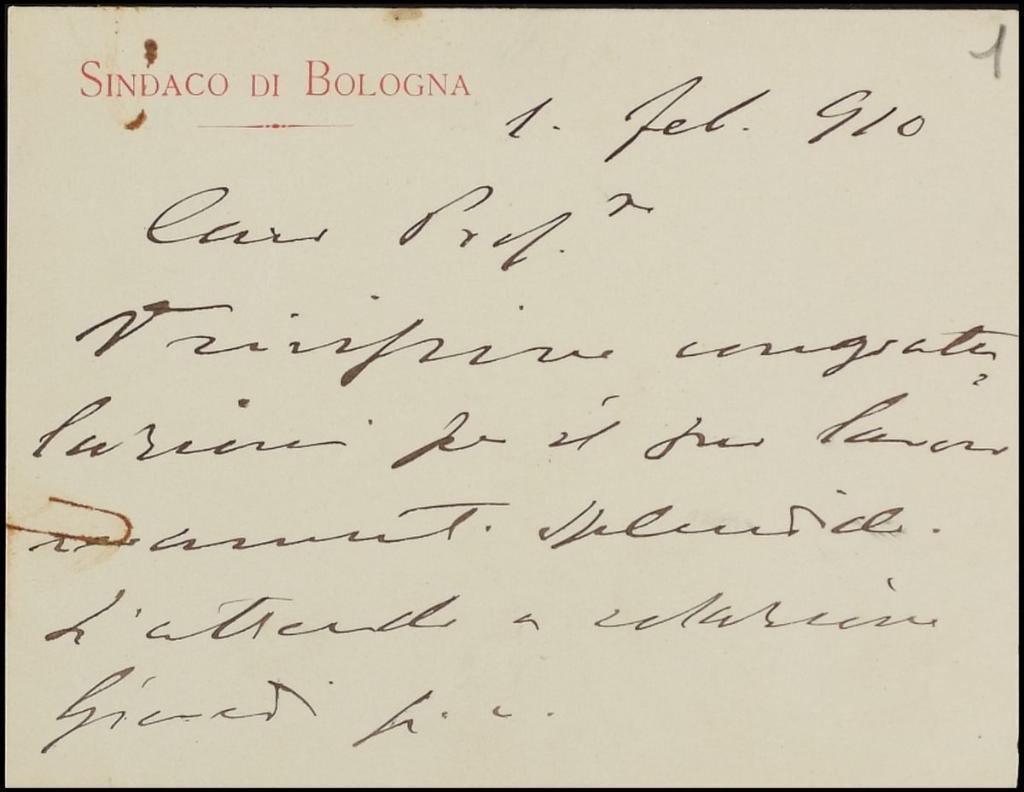 1
SINDACO DI BOLOGNA
1. feb. 910
Caro Prof.r
Vivissime congratu
lazioni per il suo lavoro
veramente splendido.
L'attendo a colazione
Giovedì p. v.